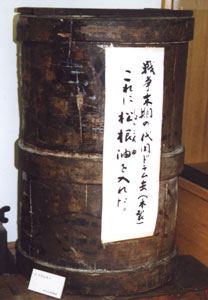 戦争末期の代用ドラム缶(木製)
これに松根油を入れた。